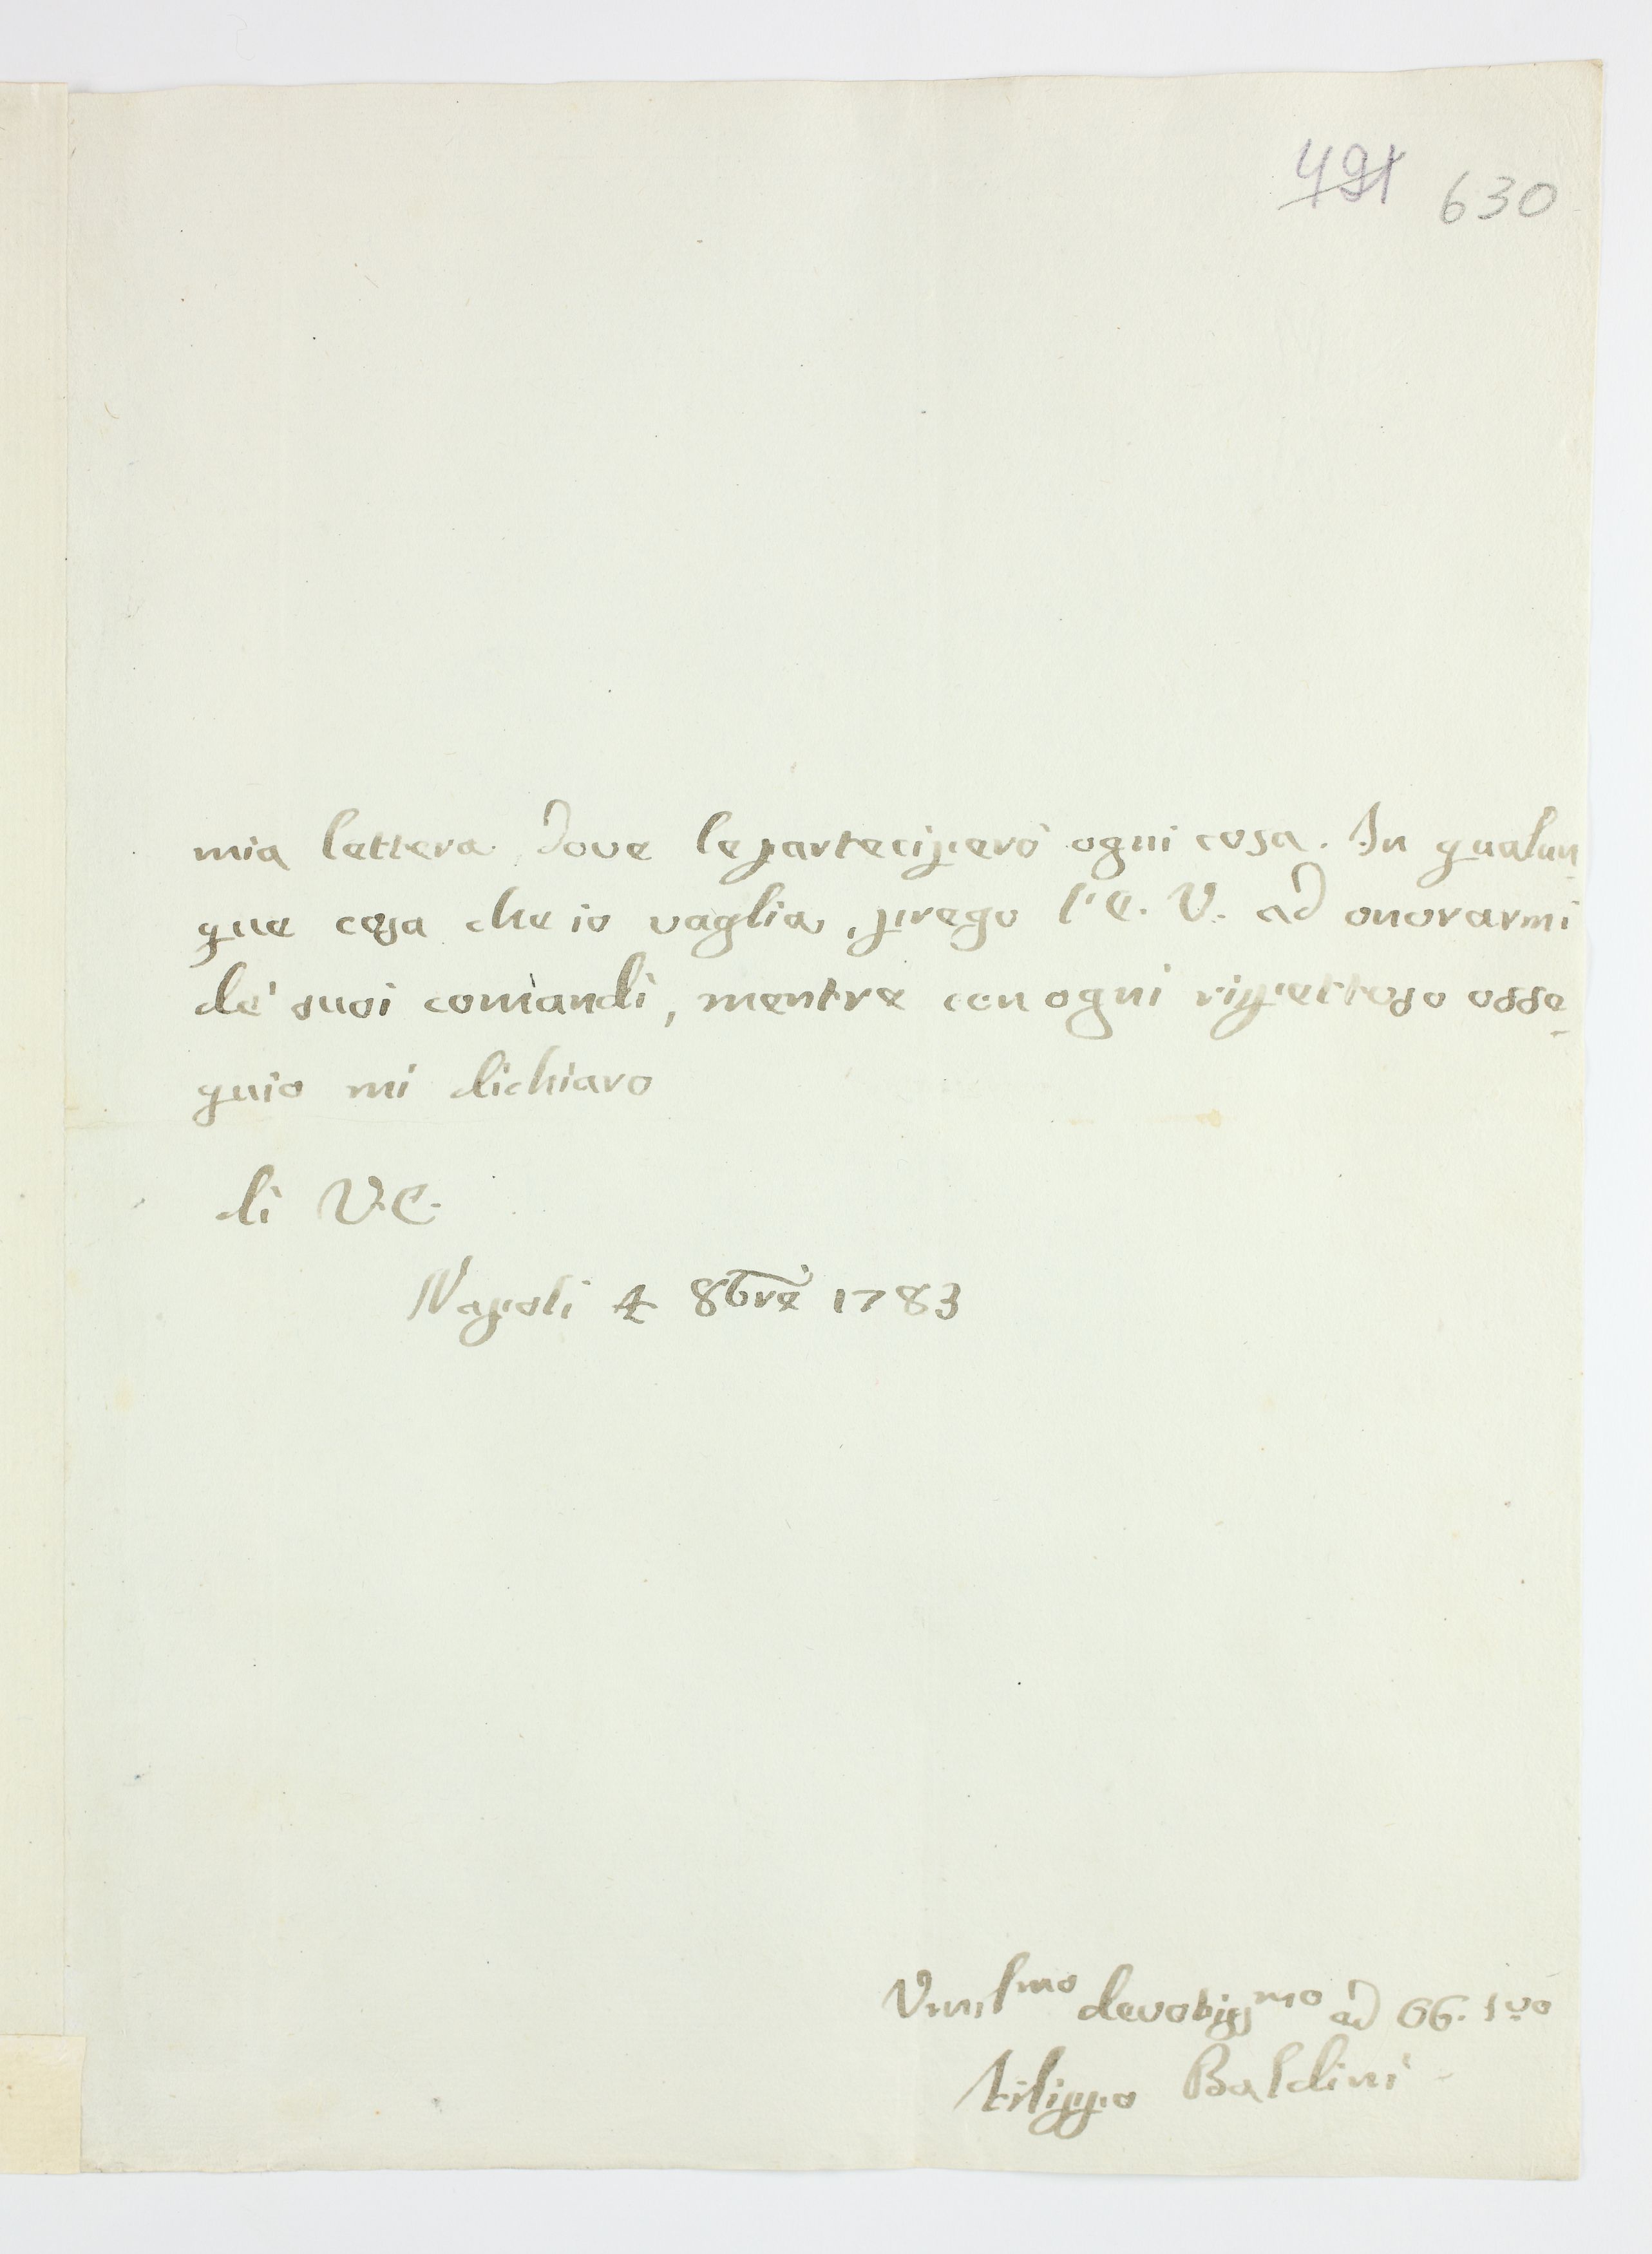 491 630
mia lettera dove le parteciperò ogni cosa. In qualun
que cosa che io vaglia, prego l'E. V. ad onorarmi
de' suoi comandi, mentre con ogni rispettoso osse-
quio mi dichiaro
di V.E.
Napoli 4 8bre 1783
Umilmo devotissmo ed ob. svo
Filippo Baldini